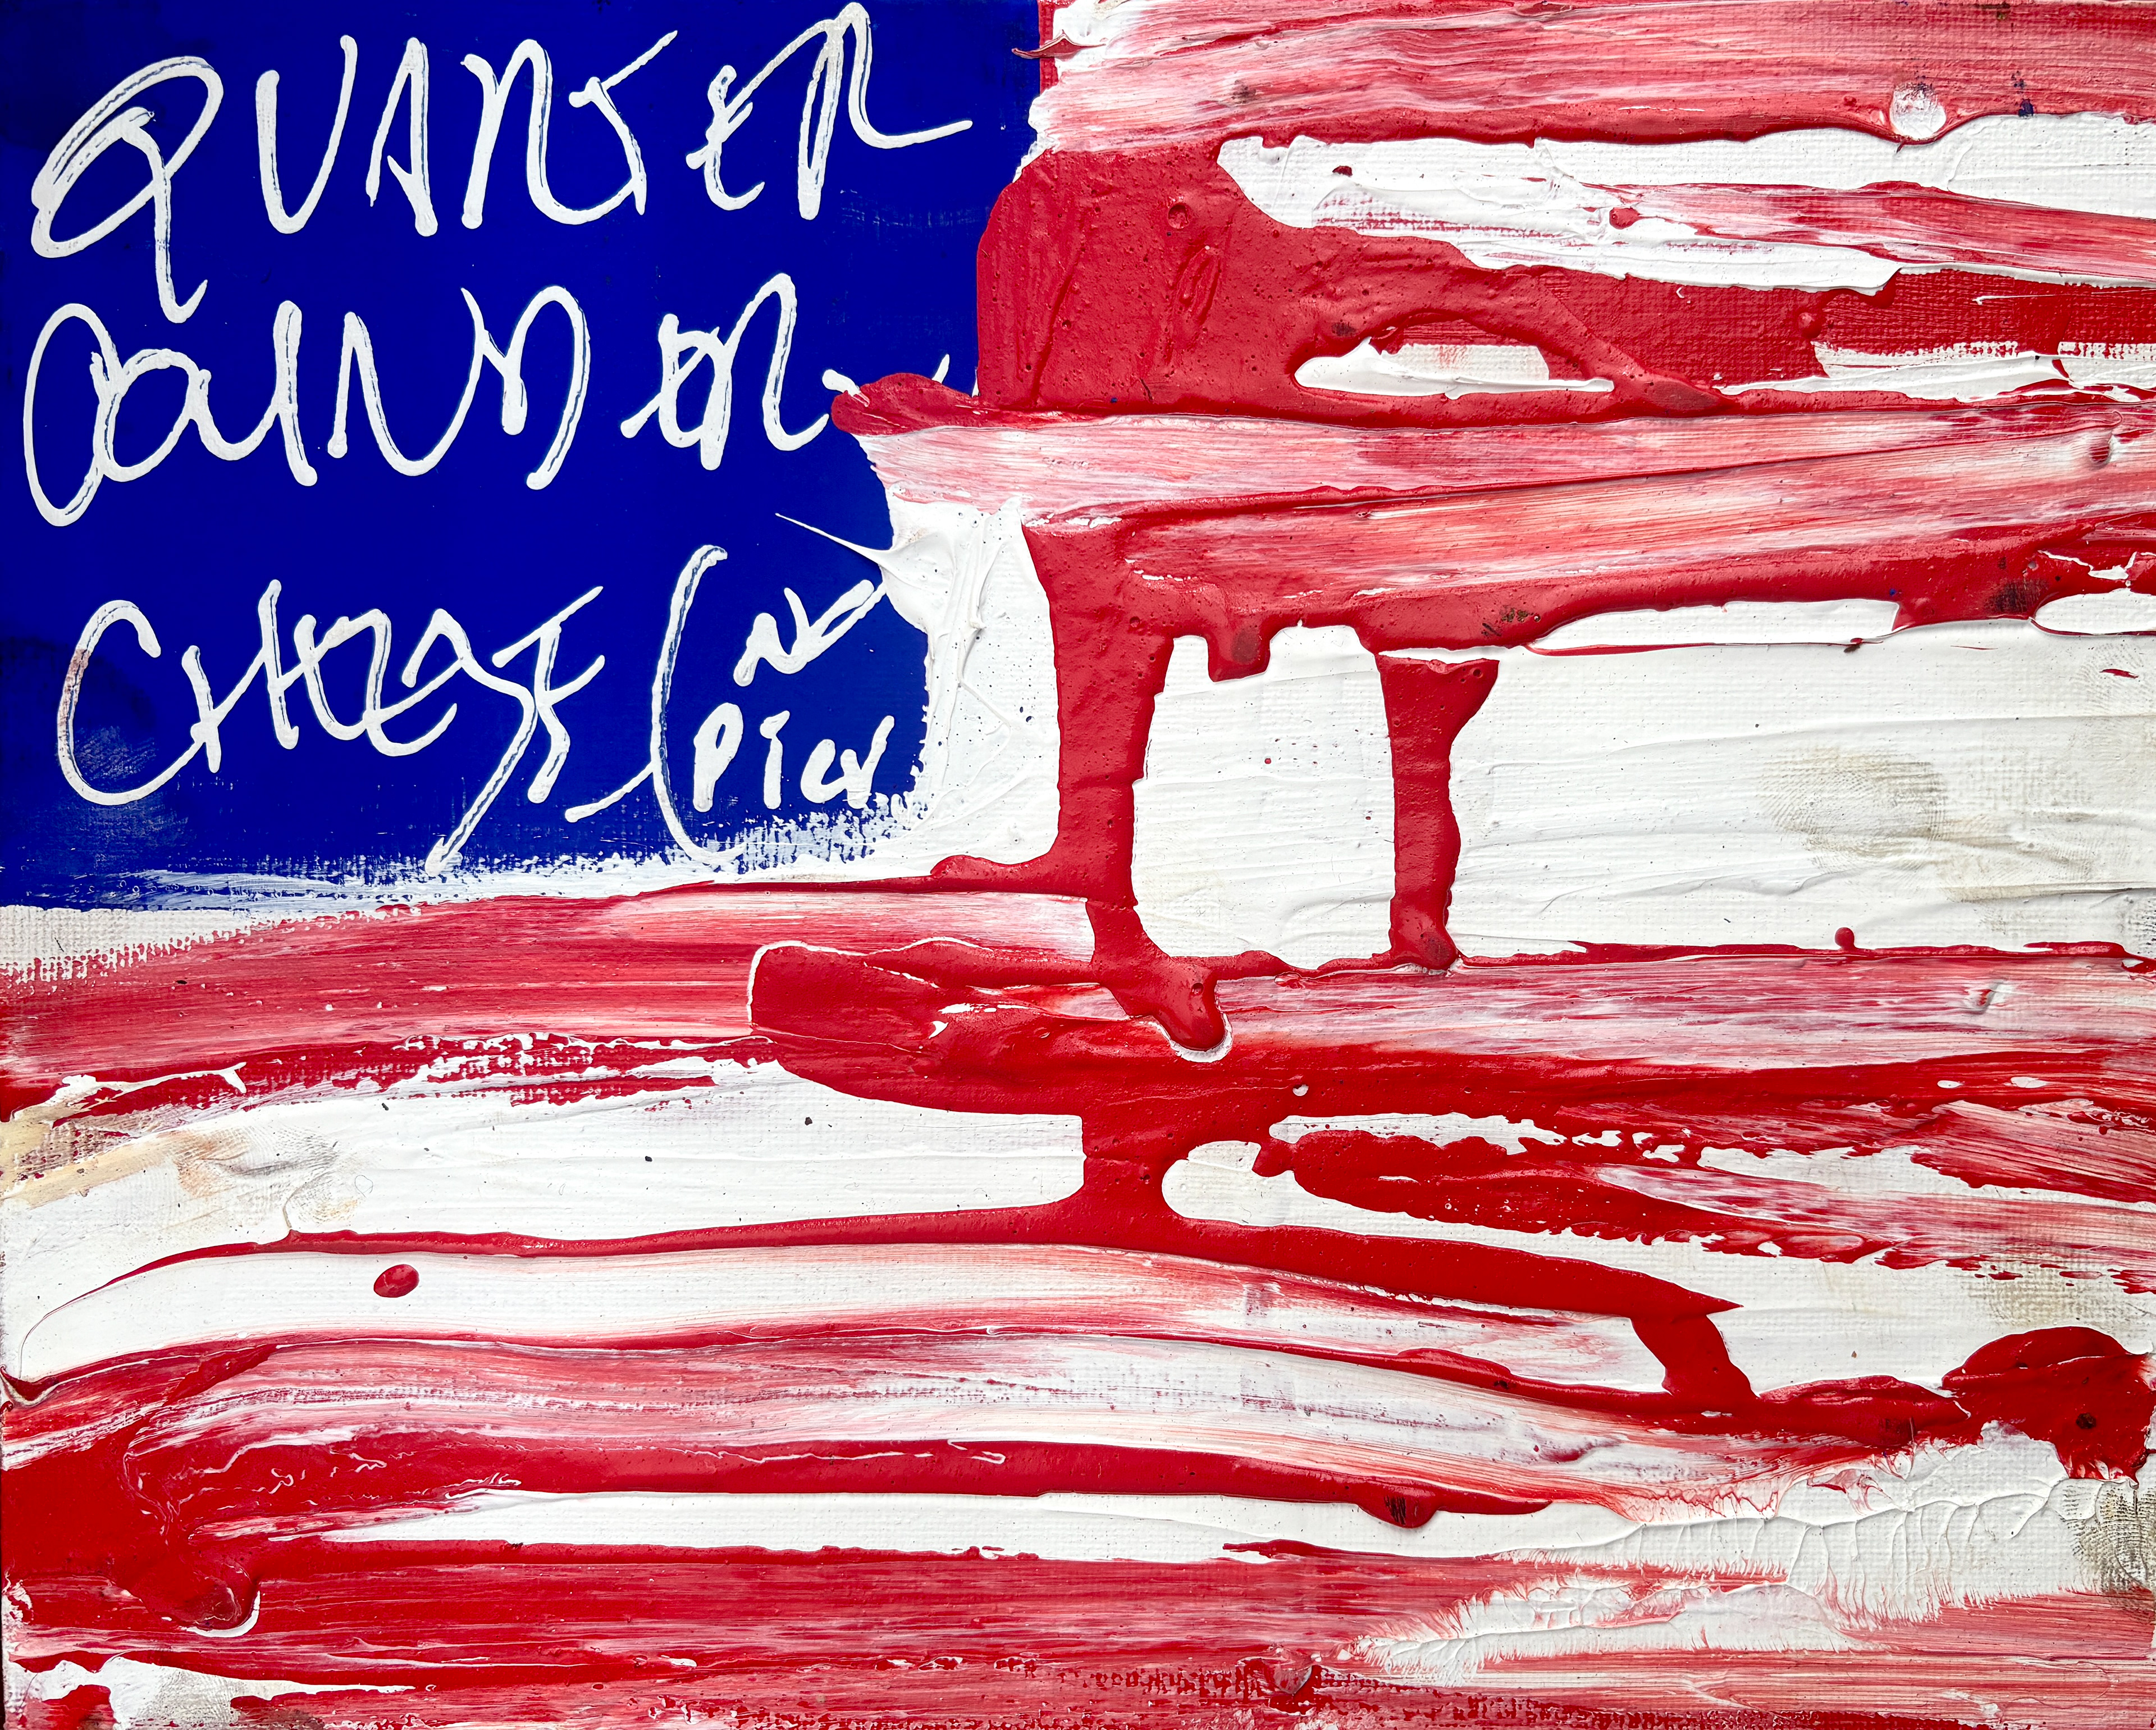 QUARTER
POUNDER
CHEESE (NO
PICK